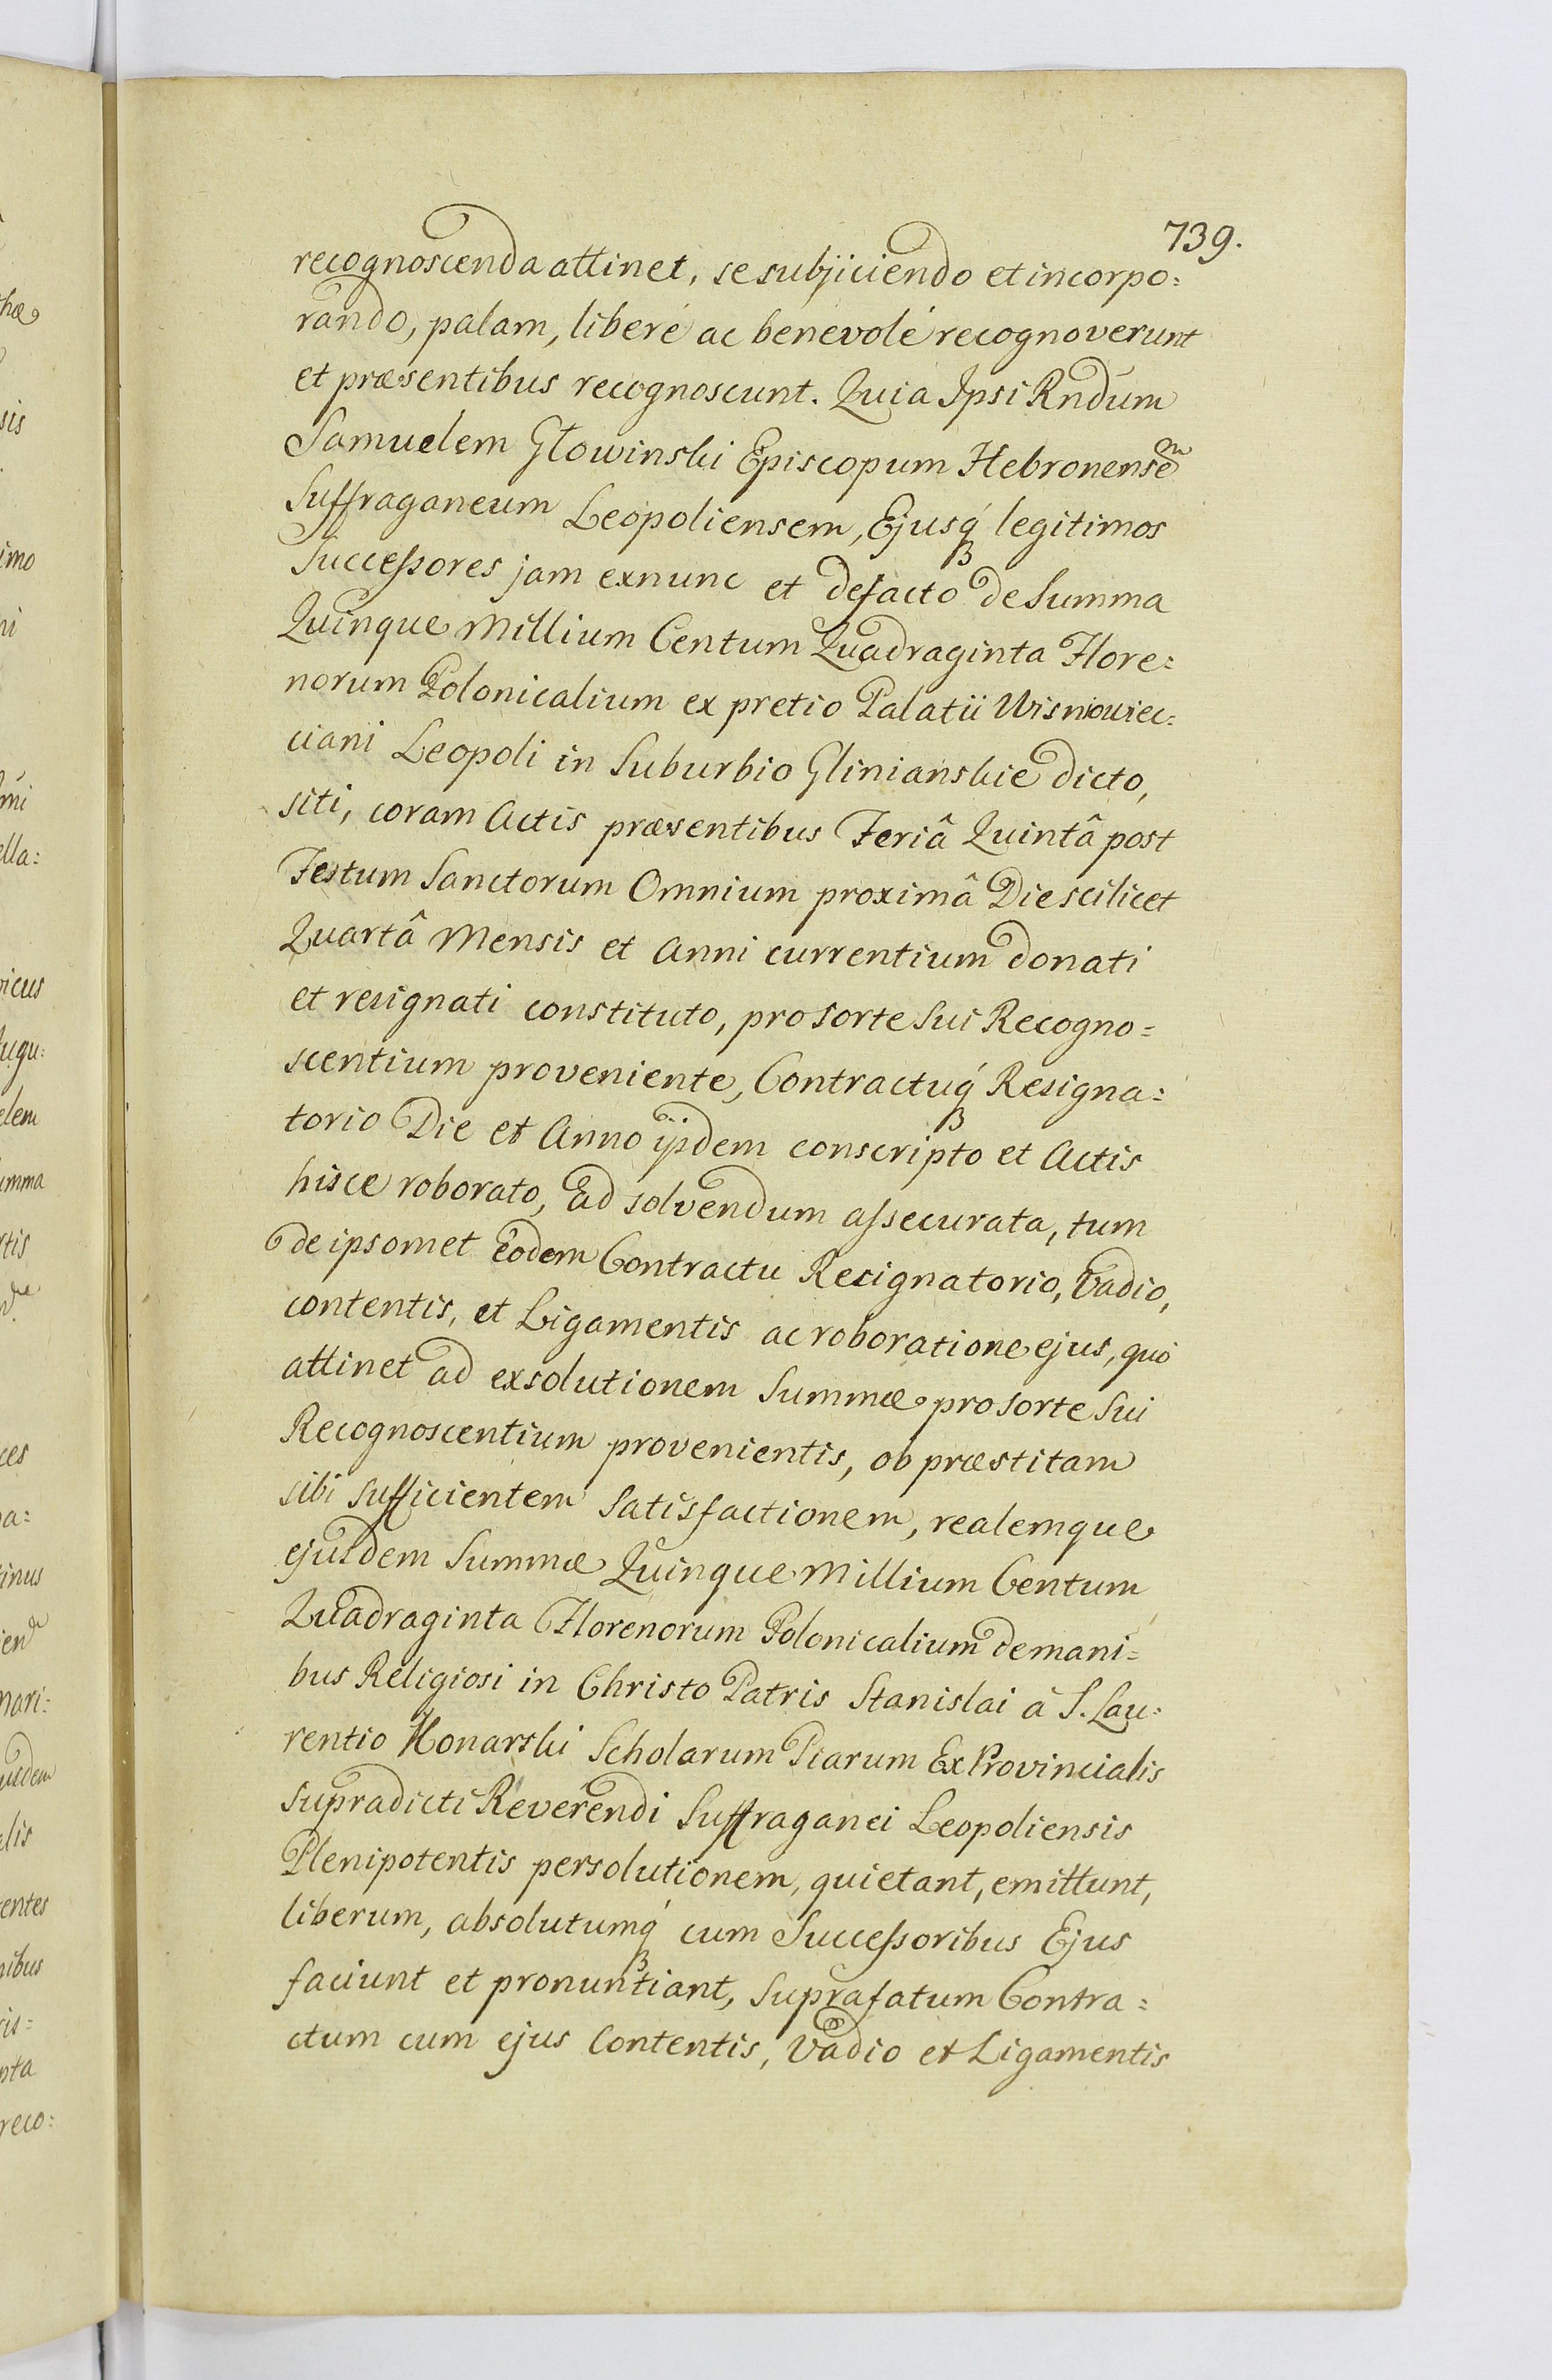 739.
recognoscenda attinet, se subjiciendo et incorpo=
rando, palam, liberé ac benevolé recognoverunt
et præsentibus recognoscunt. Quia Ipsi Rndum
Samuelem Głowinski Episcopum Hebronensem
Suffraganeum Leopoliensem, Ejusq́ legitimos
Successores jam exnunc et defacto de Summa
Quinque Millium Centum Quadraginta Flore=
norum Polonicalium ex pretio Palatii Wisniowiec=
ciani Leopoli in Suburbio Glinianskie dicto,
siti, coram Actis præsentibus Feriâ Quintâ post
Festum Sanctorum Omnium proximâ Die scilicet
Quartâ Mensis et Anni currentium donati
et resignati constituto, pro sorte Sui Recogno=
scentium proveniente, Contractuq́ Resigna=
torio Die et Anno ijsdem conscripto et Actis
hisce roborato, ad solvendum assecurata, tum
de ipsomet Eodem Contractu Resignatorio, Vadio,
contentis, et Ligamentis ac roboratione ejus, quò
attinet ad exsolutionem Summæ pro sorte Sui
Recognoscentium provenientis, ob præstitam
sibi sufficientem Satisfactionem, realemque
ejusdem Summæ Quinque Millium Centum
Quadraginta Florenorum Polonicalium de mani=
bus Religiosi in Christo Patris Stanislai à S. Lau=
rentio Konarski Scholarum Piarum Ex Provincialis
Supradicti Reverendi Suffraganei Leopoliensis
Plenipotentis persolutionem, quietant, emittunt,
liberum, absolutumq́ cum Successoribus Ejus
faciunt et pronuntiant, Suprafatum Contra=
ctum cum ejus Contentis, Vadio et Ligamentis